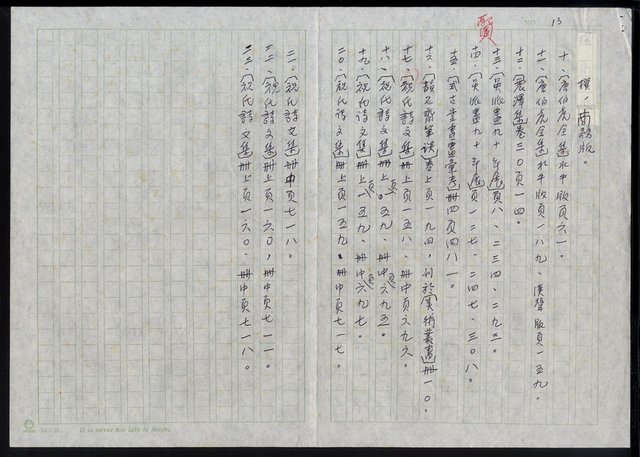 13
撰，商務版。
十、《唐伯虎全集》水牛版頁六一。
十一、《唐伯虎全集》水牛版頁一八九、漢聲版頁一五九。
十二、《震澤集》卷三○頁一四。
十三、《吳派畫九十年展》頁八、二三四、二九三。
十四、《吳派畫九十年展》頁一二七、二四七、三○八。
十五、《式古堂書畫彙考》冊四頁四八一。
十六、《韻石齋筆談》卷上頁一九四，刊於《美術叢書》冊一○。
十七、《祝氏詩文集》冊上頁一五八、冊中頁六九六。
十八、《祝氏詩文集》冊上頁一五九、冊中頁六九五。
十九、《祝氏詩文集》冊上頁一五九、冊中頁六九七。
二○、《祝氏詩文集》冊上頁一五九、冊中頁七一七。
二一、《祝氏詩文集》冊中頁七一八。
二二、《祝氏詩文集》冊上頁一六○，冊中頁七一一。
二三、《祝氏詩文集》冊上頁一六○、冊中頁七一八。
It is never too late to learn;